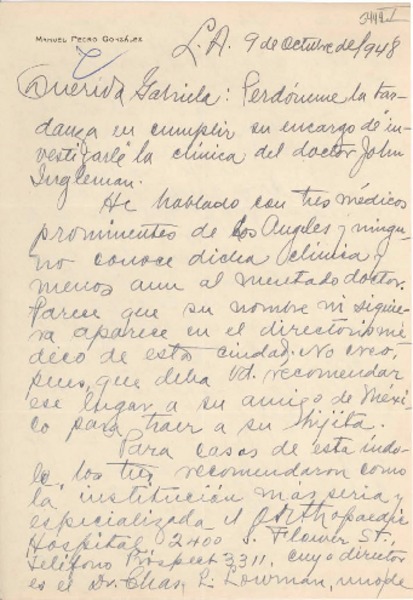 MANUEL PEDRO GONZÁLEZ
L.A. 9 de Octubre de 1948
Querida Gabriela: Perdóneme la tar-
danza en cumplir su encargo de "in-
vestigarle" la clínica del doctor John
Ingleman.
He hablado con tres médicos
prominentes de Los Angeles y ningu-
no conoce dicha clínica y
menos aun al mentado doctor.
Parece que su nombre ni siquie-
ra aparece en el directorio mé
dico de esta ciudad. No creo,
pues, que deba Vd. recomendar
ese lugar a su amigo de Méxi
co para traer a su hijita.
Para casos de esta índo-
le, los tres recomendaron como
la institución más seria y
especializada el Orthopaedic
Hospital, 2400 S. Flower St.,
Teléfono Prospect 3311, cuyo director
es el Dr. Chas. L. Lowman, uno de